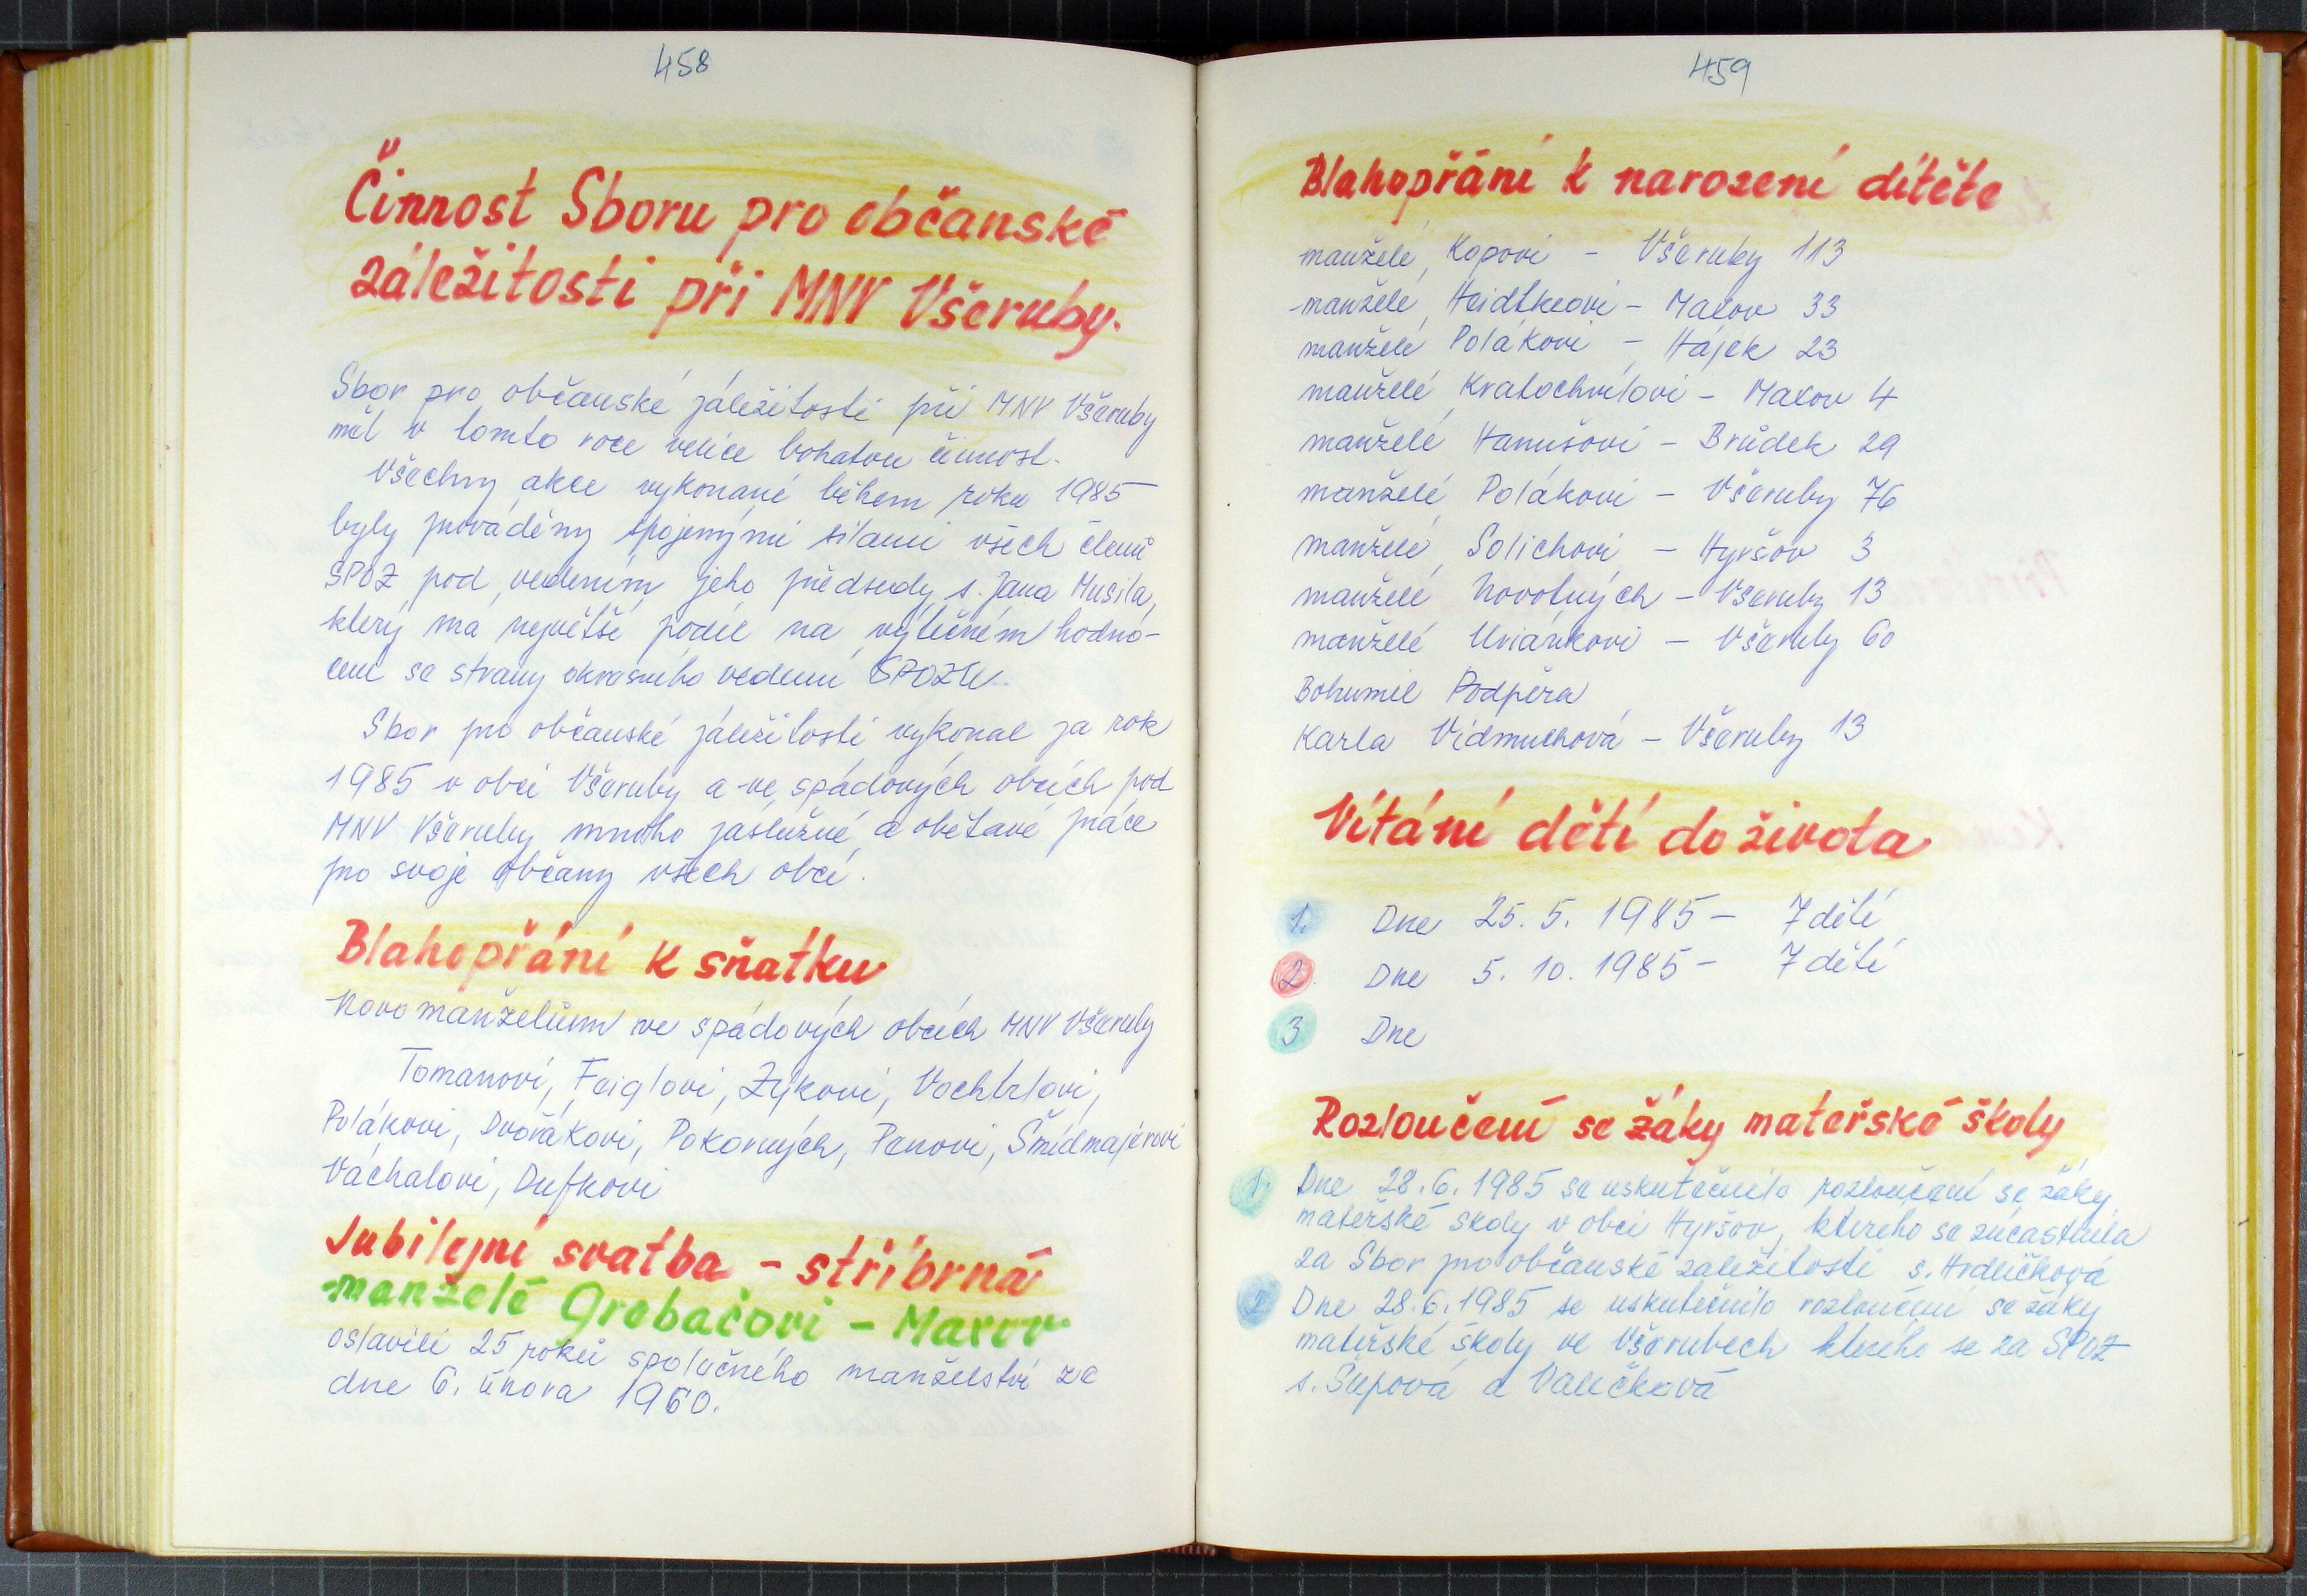 458
Činnost Sboru pro občanské
záležitosti při MNV Všeruby.
Sbor pro občanské záležitosti při MNV Všeruby
měl v tomto roce velice bohatou činnost.
Všechny akce vykonané během roku 1985
byly prováděny spojenými silami všech členů
SPOZ pod vedením jeho předsedy s. Jana Musila,
který má největší podíl na výtečném hodno-
cení se strany okresního vedení SPOZU.
Sbor pro občanské záležitosti vykonal za rok
1985 v obci Všeruby a ve spádových obcích pod
MNV Všeruby mnoho záslužné a obětavé práce
pro svoje občany všech obcí.
Blahopřání k sňatku
Novomanželům ve spádových obcích MNV Všeruby
Tomanovi, Feiglovi, Zýkovi, Vochtrlovi,
Polákovi, Dvořákovi, Pokorných, Penovi, Šmídmajerovi
Váchalovi, Dufkovi
Jubilejní svatba - stříbrná
manželé Grobačovi - Maxov
oslavili 25 roků společného manželství ze
dne 6. února 1960.
459
Blahopřání k narození dítěte
manželé Kopovi - Všeruby 113
manželé Heidtkeovi - Maxov 33
manželé Polákovi - Hájek 23
manželé Kratochvílovi - Maxov 4
manželé Hanušovi - Brůdek 29
manželé Polákovi - Všeruby 76
manželé Solichovi - Hyršov 3
manželé Novotných - Všeruby 13
manželé - Všeruby 60
Bohumil Podpěra
Karla - Všeruby 13
Vítání dětí do života
1. Dne 25. 5. 1985 - 7 dětí
2. Dne 5. 10. 1985 - 7 dětí
3. Dne
Rozloučení se žáky mateřské školy
1. Dne 28. 6. 1985 se uskutečnilo rozloučení se žáky
mateřské školy v obci Hyršov, kterého se zúčastnila
za Sbor pro občanské záležitosti s. Hrdličková
2. Dne 28. 6. 1985 se uskutečnilo rozloučení se žáky
mateřské školy ve Všerubech kterého se za SPOZ
s. Šípová a Valečková